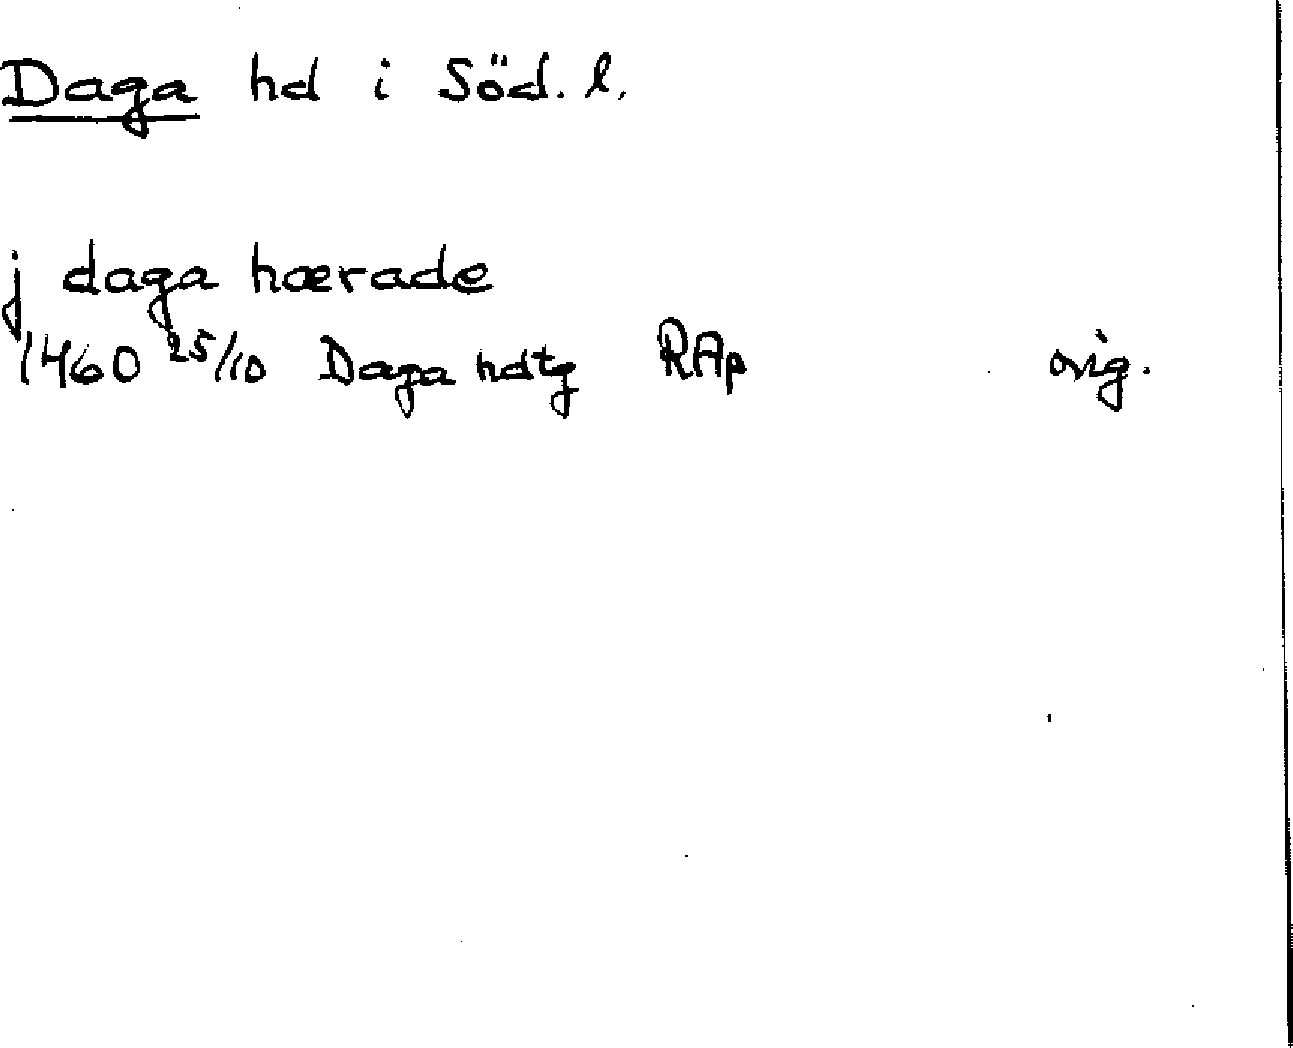 Daga hd i Söd. l.
j daga hærade
1460 25/10 Daga hdtg RAp orig.